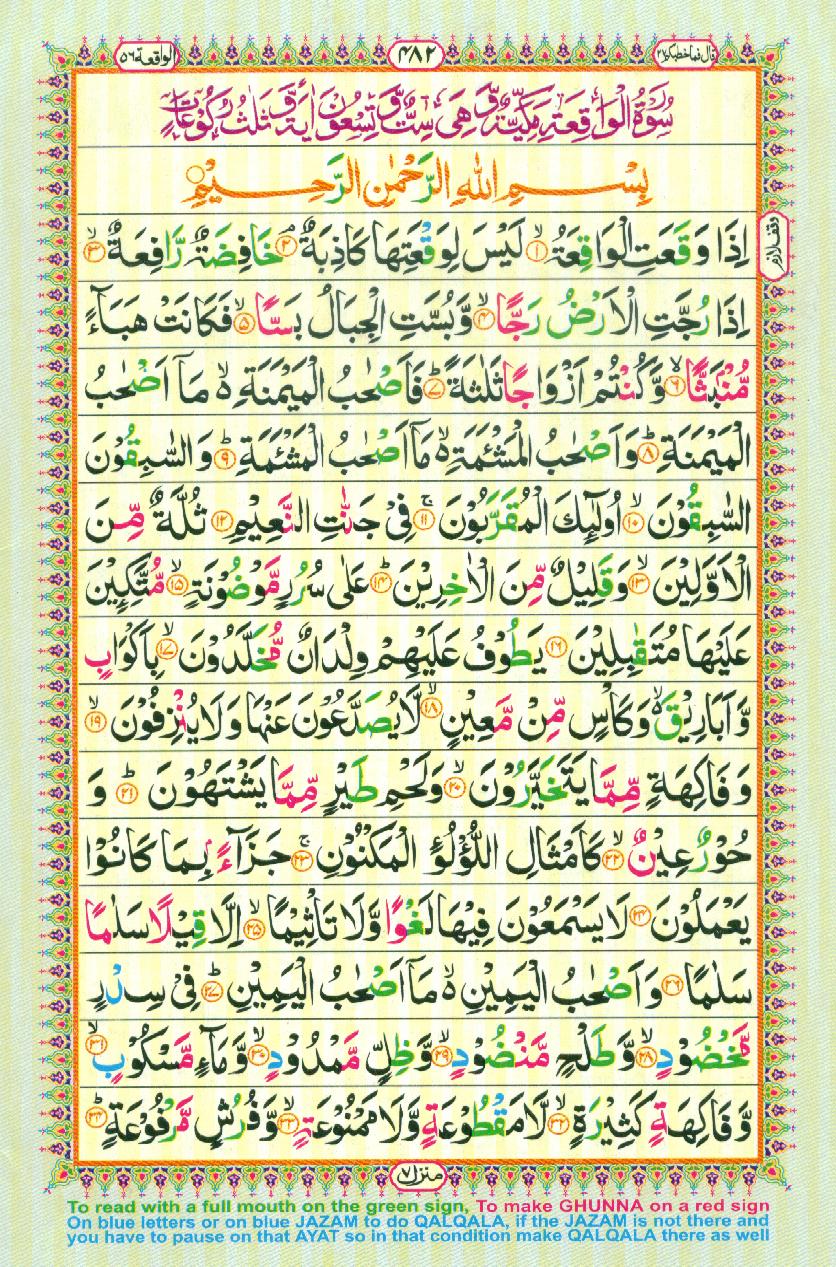 قال فما خطبكم ٢٧
٤٨٢
الواقعة ٥٦
سُوْرَةُ الْوَاقِعَةِ مَكِّيَّةٌ وَّهِيَ سِتٌّ وَّتِسْعُوْنَ اٰيَةً وَّثَلٰثُ رُكُوْعَاتٍ
بِسْمِ اللهِ الرَّحْمٰنِ الرَّحِيْمِ
وقف لازم
اِذَا وَقَعَتِ الْوَاقِعَةُ ۙ١ لَيْسَ لِوَقْعَتِهَا كَاذِبَةٌ ۘ٢ خَافِضَةٌ رَّافِعَةٌ ۙ٣
اِذَا رُجَّتِ الْاَرْضُ رَجًّا ۙ٤ وَّبُسَّتِ الْجِبَالُ بَسًّا ۙ٥ فَكَانَتْ هَبَآءً
مُّنْۢبَثًّا ۙ٦ وَّكُنْتُمْ اَزْوَاجًا ثَلٰثَةً ؕ٧ فَاَصْحٰبُ الْمَيْمَنَةِ ۙ۬ مَاۤ اَصْحٰبُ
الْمَيْمَنَةِ ؕ٨ وَاَصْحٰبُ الْمَشْـَٔمَةِ ۙ۬ مَاۤ اَصْحٰبُ الْمَشْـَٔمَةِ ؕ٩ وَالسّٰبِقُوْنَ
السّٰبِقُوْنَ ۙ١٠ اُولٰٓئِكَ الْمُقَرَّبُوْنَ ۚ١١ فِيْ جَنّٰتِ النَّعِيْمِ ١٢ ثُلَّةٌ مِّنَ
الْاَوَّلِيْنَ ۙ١٣ وَقَلِيْلٌ مِّنَ الْاٰخِرِيْنَ ؕ١٤ عَلٰى سُرُرٍ مَّوْضُوْنَةٍ ۙ١٥ مُّتَّكِـِٕيْنَ
عَلَيْهَا مُتَقٰبِلِيْنَ ١٦ يَطُوْفُ عَلَيْهِمْ وِلْدَانٌ مُّخَلَّدُوْنَ ۙ١٧ بِاَكْوَابٍ
وَّاَبَارِيْقَ ۙ۬ وَكَاْسٍ مِّنْ مَّعِيْنٍ ۙ١٨ لَّا يُصَدَّعُوْنَ عَنْهَا وَلَا يُنْزِفُوْنَ ۙ١٩
وَفَاكِهَةٍ مِّمَّا يَتَخَيَّرُوْنَ ۙ٢٠ وَلَحْمِ طَيْرٍ مِّمَّا يَشْتَهُوْنَ ؕ٢١ وَ
حُوْرٌ عِيْنٌ ۙ٢٢ كَاَمْثَالِ اللُّؤْلُؤِ الْمَكْنُوْنِ ۚ٢٣ جَزَآءًۢ بِمَا كَانُوْا
يَعْمَلُوْنَ ٢٤ لَا يَسْمَعُوْنَ فِيْهَا لَغْوًا وَّلَا تَاْثِيْمًا ۙ٢٥ اِلَّا قِيْلًا سَلٰمًا
سَلٰمًا ٢٦ وَاَصْحٰبُ الْيَمِيْنِ ۙ۬ مَاۤ اَصْحٰبُ الْيَمِيْنِ ؕ٢٧ فِيْ سِدْرٍ
مَّخْضُوْدٍ ۙ٢٨ وَّطَلْحٍ مَّنْضُوْدٍ ۙ٢٩ وَّظِلٍّ مَّمْدُوْدٍ ۙ٣٠ وَّمَآءٍ مَّسْكُوْبٍ ۙ٣١
وَّفَاكِهَةٍ كَثِيْرَةٍ ۙ٣٢ لَّا مَقْطُوْعَةٍ وَّلَا مَمْنُوْعَةٍ ۙ٣٣ وَّفُرُشٍ مَّرْفُوْعَةٍ ؕ٣٤
منزل ٧
To read with a full mouth on the green sign, To make GHUNNA on a red sign
On blue letters or on blue JAZAM to do QALQALA, if the JAZAM is not there and
you have to pause on that AYAT so in that condition make QALQALA there as well